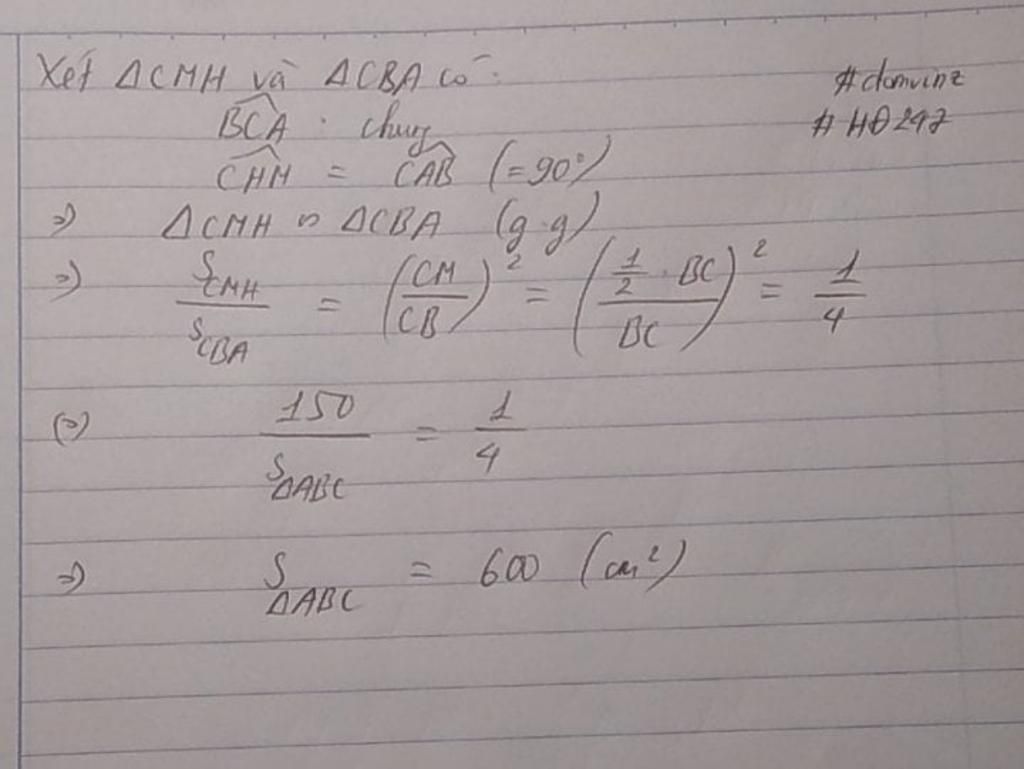 Xét ΔCMH và ΔCBA có:
#domvinz
BCA : chung
#HĐ247
CHM = CAB (=90°)
=> ΔCMH ∽ ΔCBA (g.g)
=> S_CMH / S_CBA = (CM/CB)² = (1/2 · BC / BC)² = 1/4
<=> 150 / S_ΔABC = 1/4
=> S_ΔABC = 600 (cm²)